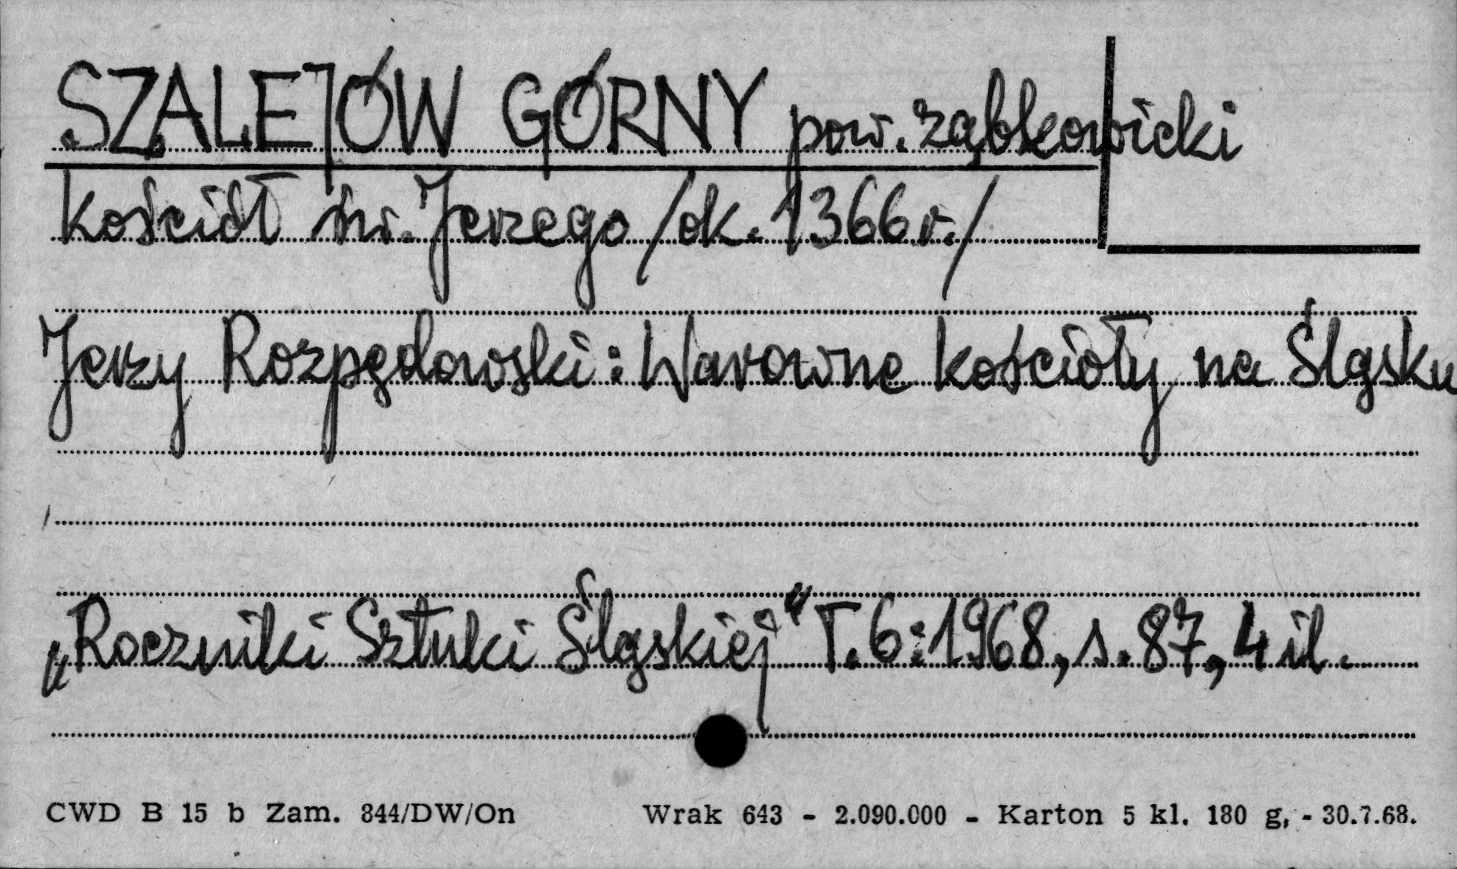 SZALEJÓW GÓRNY pow. ząbkowicki
kościół św. Jerzego /ok. 1366 r./
Jerzy Rozpędowski: Warowne kościoły na Śląsku
„Roczniki Sztuki Śląskiej" T. 6: 1968, s. 87, 4 il.
CWD B 15 b Zam. 844/DW/On Wrak 643 - 2.090.000 - Karton 5 kl. 180 g, - 30.7.68.